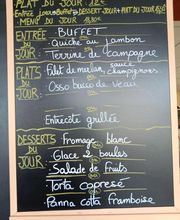 PLAT DU JOUR: 12€
Entrée BUFFET
ENTRÉE DU JOUR:
Quiche au jambon
Terrine de campagne
PLATS DU JOUR:
Filet de merlan, sauce champignons
Osso buco de veau
Entrecôte grillée
DESSERTS DU JOUR:
Fromage blanc
Glace 2 boules
Salade de fruits
Torta caprese
Panna cotta framboise